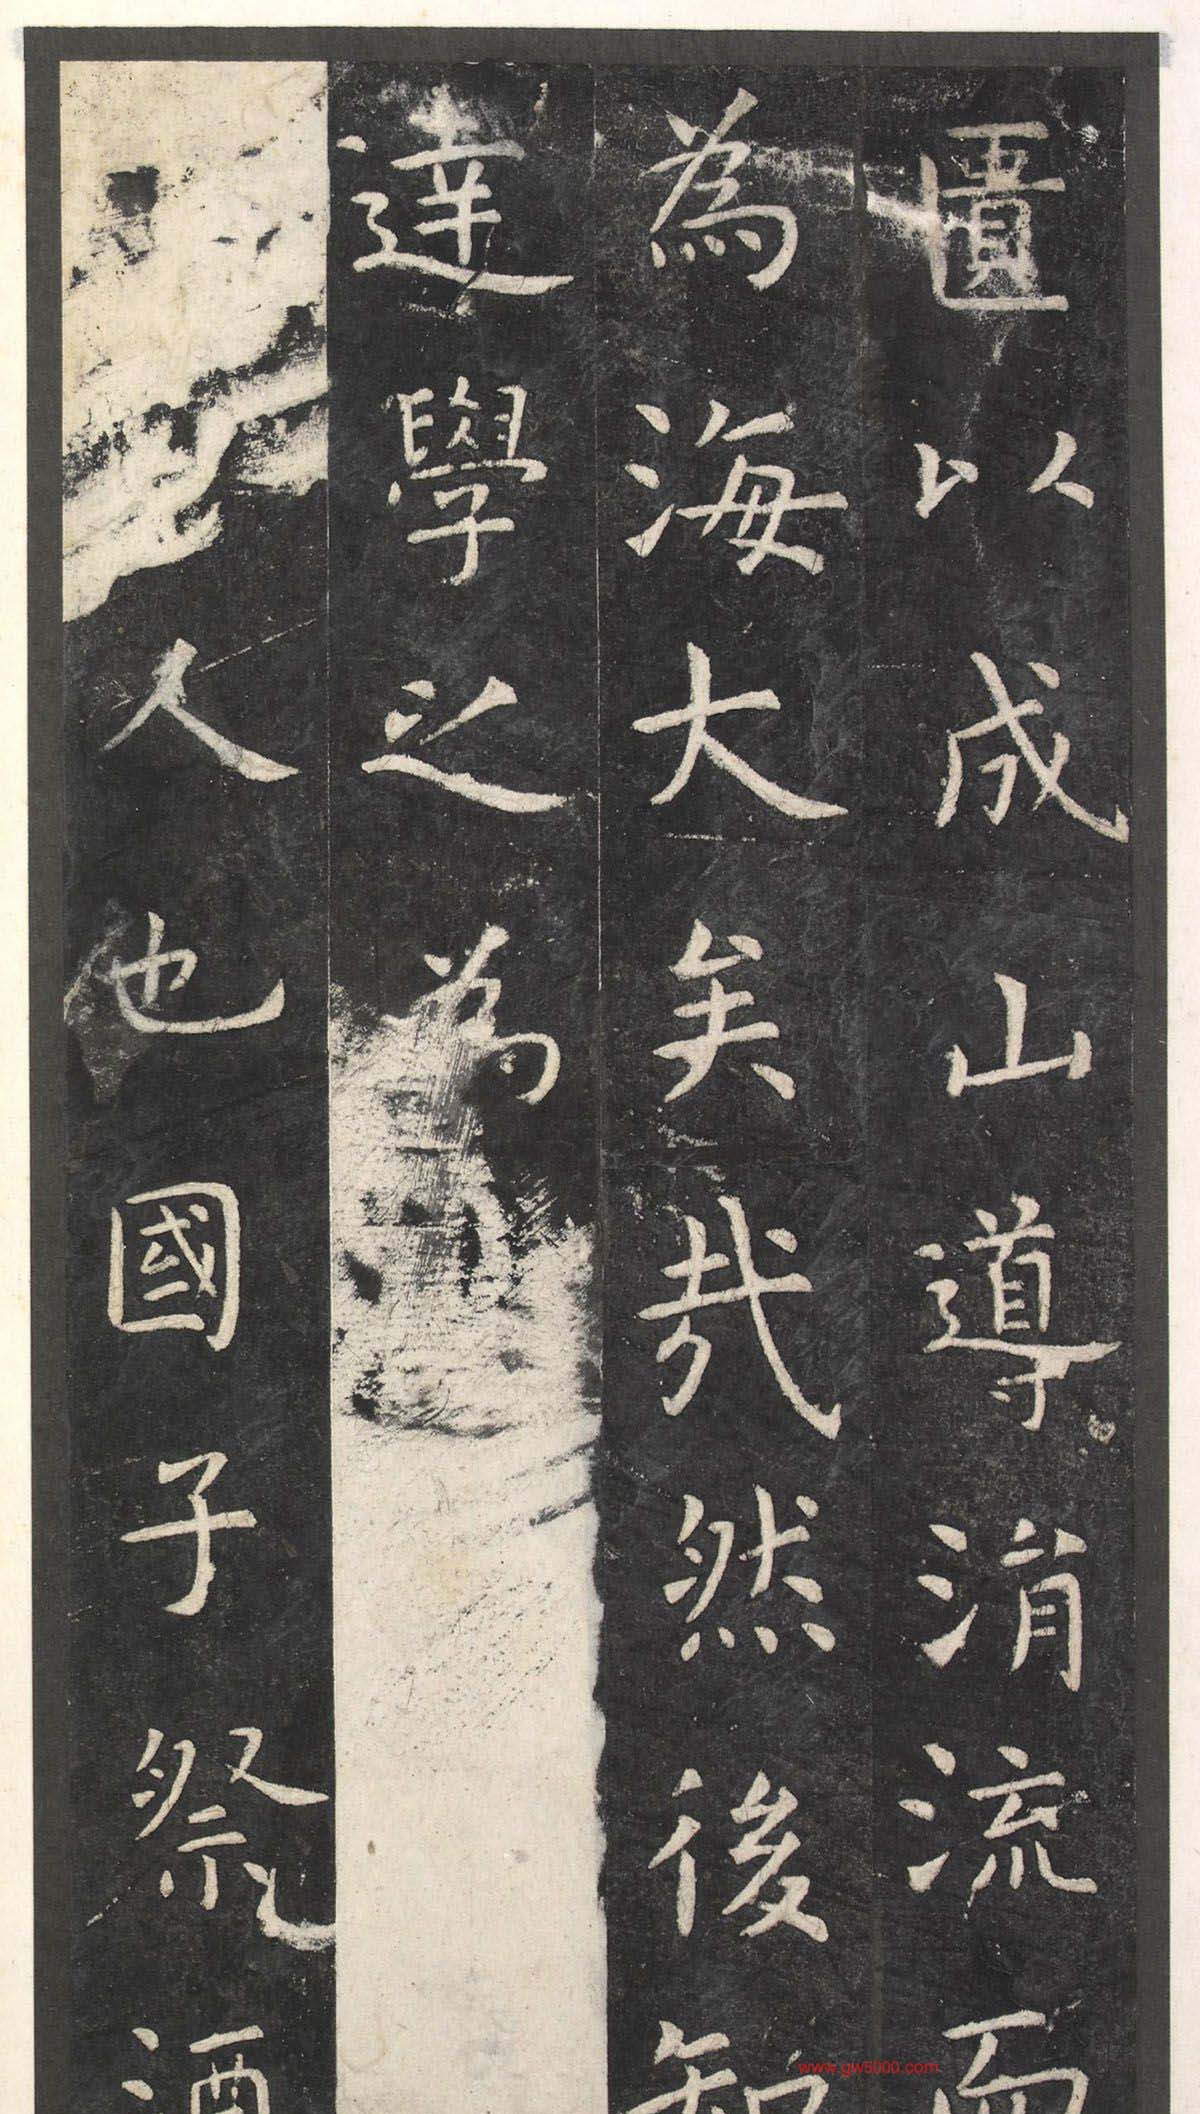 匱以成山導涓流而
為海大矣哉然後知
達學之為
人也國子祭酒
www.gw5000.com